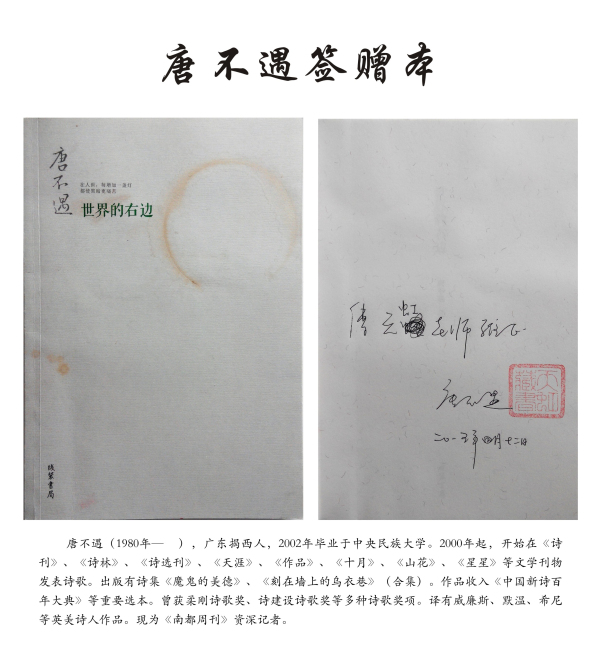 唐不遇签赠本
唐不遇
世界的右边
线装书局
傅天虹老师雅正
唐不遇
天虹藏书
二〇一五年四月十二日
唐不遇（1980年—　），广东揭西人，2002年毕业于中央民族大学。2000年起，开始在《诗
刊》、《诗林》、《诗选刊》、《天涯》、《作品》、《十月》、《山花》、《星星》等文学刊物
发表诗歌。出版有诗集《魔鬼的美德》、《刻在墙上的乌衣巷》（合集）。作品收入《中国新诗百
年大典》等重要选本。曾获柔刚诗歌奖、诗建设诗歌奖等多种诗歌奖项。译有威廉斯、默温、希尼
等英美诗人作品。现为《南都周刊》资深记者。